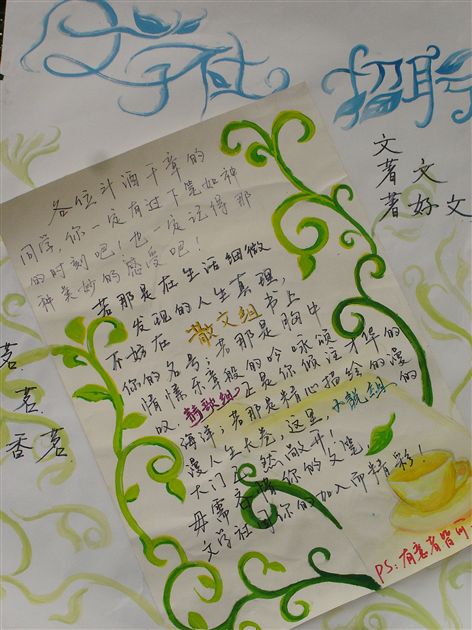 文学社 招聘
文
著 文
著 好 文
茗
茗
香茗
各位斗酒千章的
同学,你一定有过下笔如神
的时刻吧!也一定记得那
种美妙的感受吧!
若那是在生活细微
发现的人生真理,
不妨在散文组书上
你的名号;若那是胸中
情愫乐章般的吟咏颂
叹,诗歌组正是你倾注才华的
海洋;若那是精心描绘的漫
漫人生长卷,这里,小说组的
大门已然敞开!
毋需吝惜你的文笔
文学社因你的加入而精彩!
PS:有意者皆可